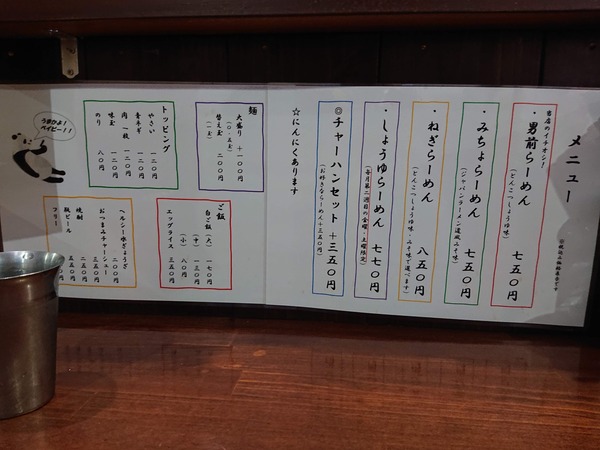 メニュー
当店のイチオシ!
・男前らーめん 七五〇円
(とんこつしょうゆ味)
・みちょらーめん 七五〇円
(ジャパンラーメン道風みそ味)
・ねぎらーめん 八五〇円
(とんこつしょうゆ味・みそ味で選べます)
・しょうゆらーめん 七七〇円
(毎月第二週目の金曜・土曜限定)
◎チャーハンセット +三五〇円
(お好きならーめん+三五〇円)
☆にんにくあります
麺
大盛り +一〇〇円
(〇・五玉)
替え玉 二〇〇円
(一玉)
トッピング
やさい 一二〇円
青ネギ 一二〇円
肉一枚 一二〇円
味玉 一二〇円
のり 八〇円
うまかよ!
ベイビー!!
ご飯
白ご飯(大) 一七〇円
(中) 一三〇円
(小) 八〇円
エッグライス 二三〇円
ヘルシー水ぎょうざ 二〇〇円
おつまみチャーシュー 三五〇円
焼酎 二五〇円
瓶ビール 五五〇円
フリー